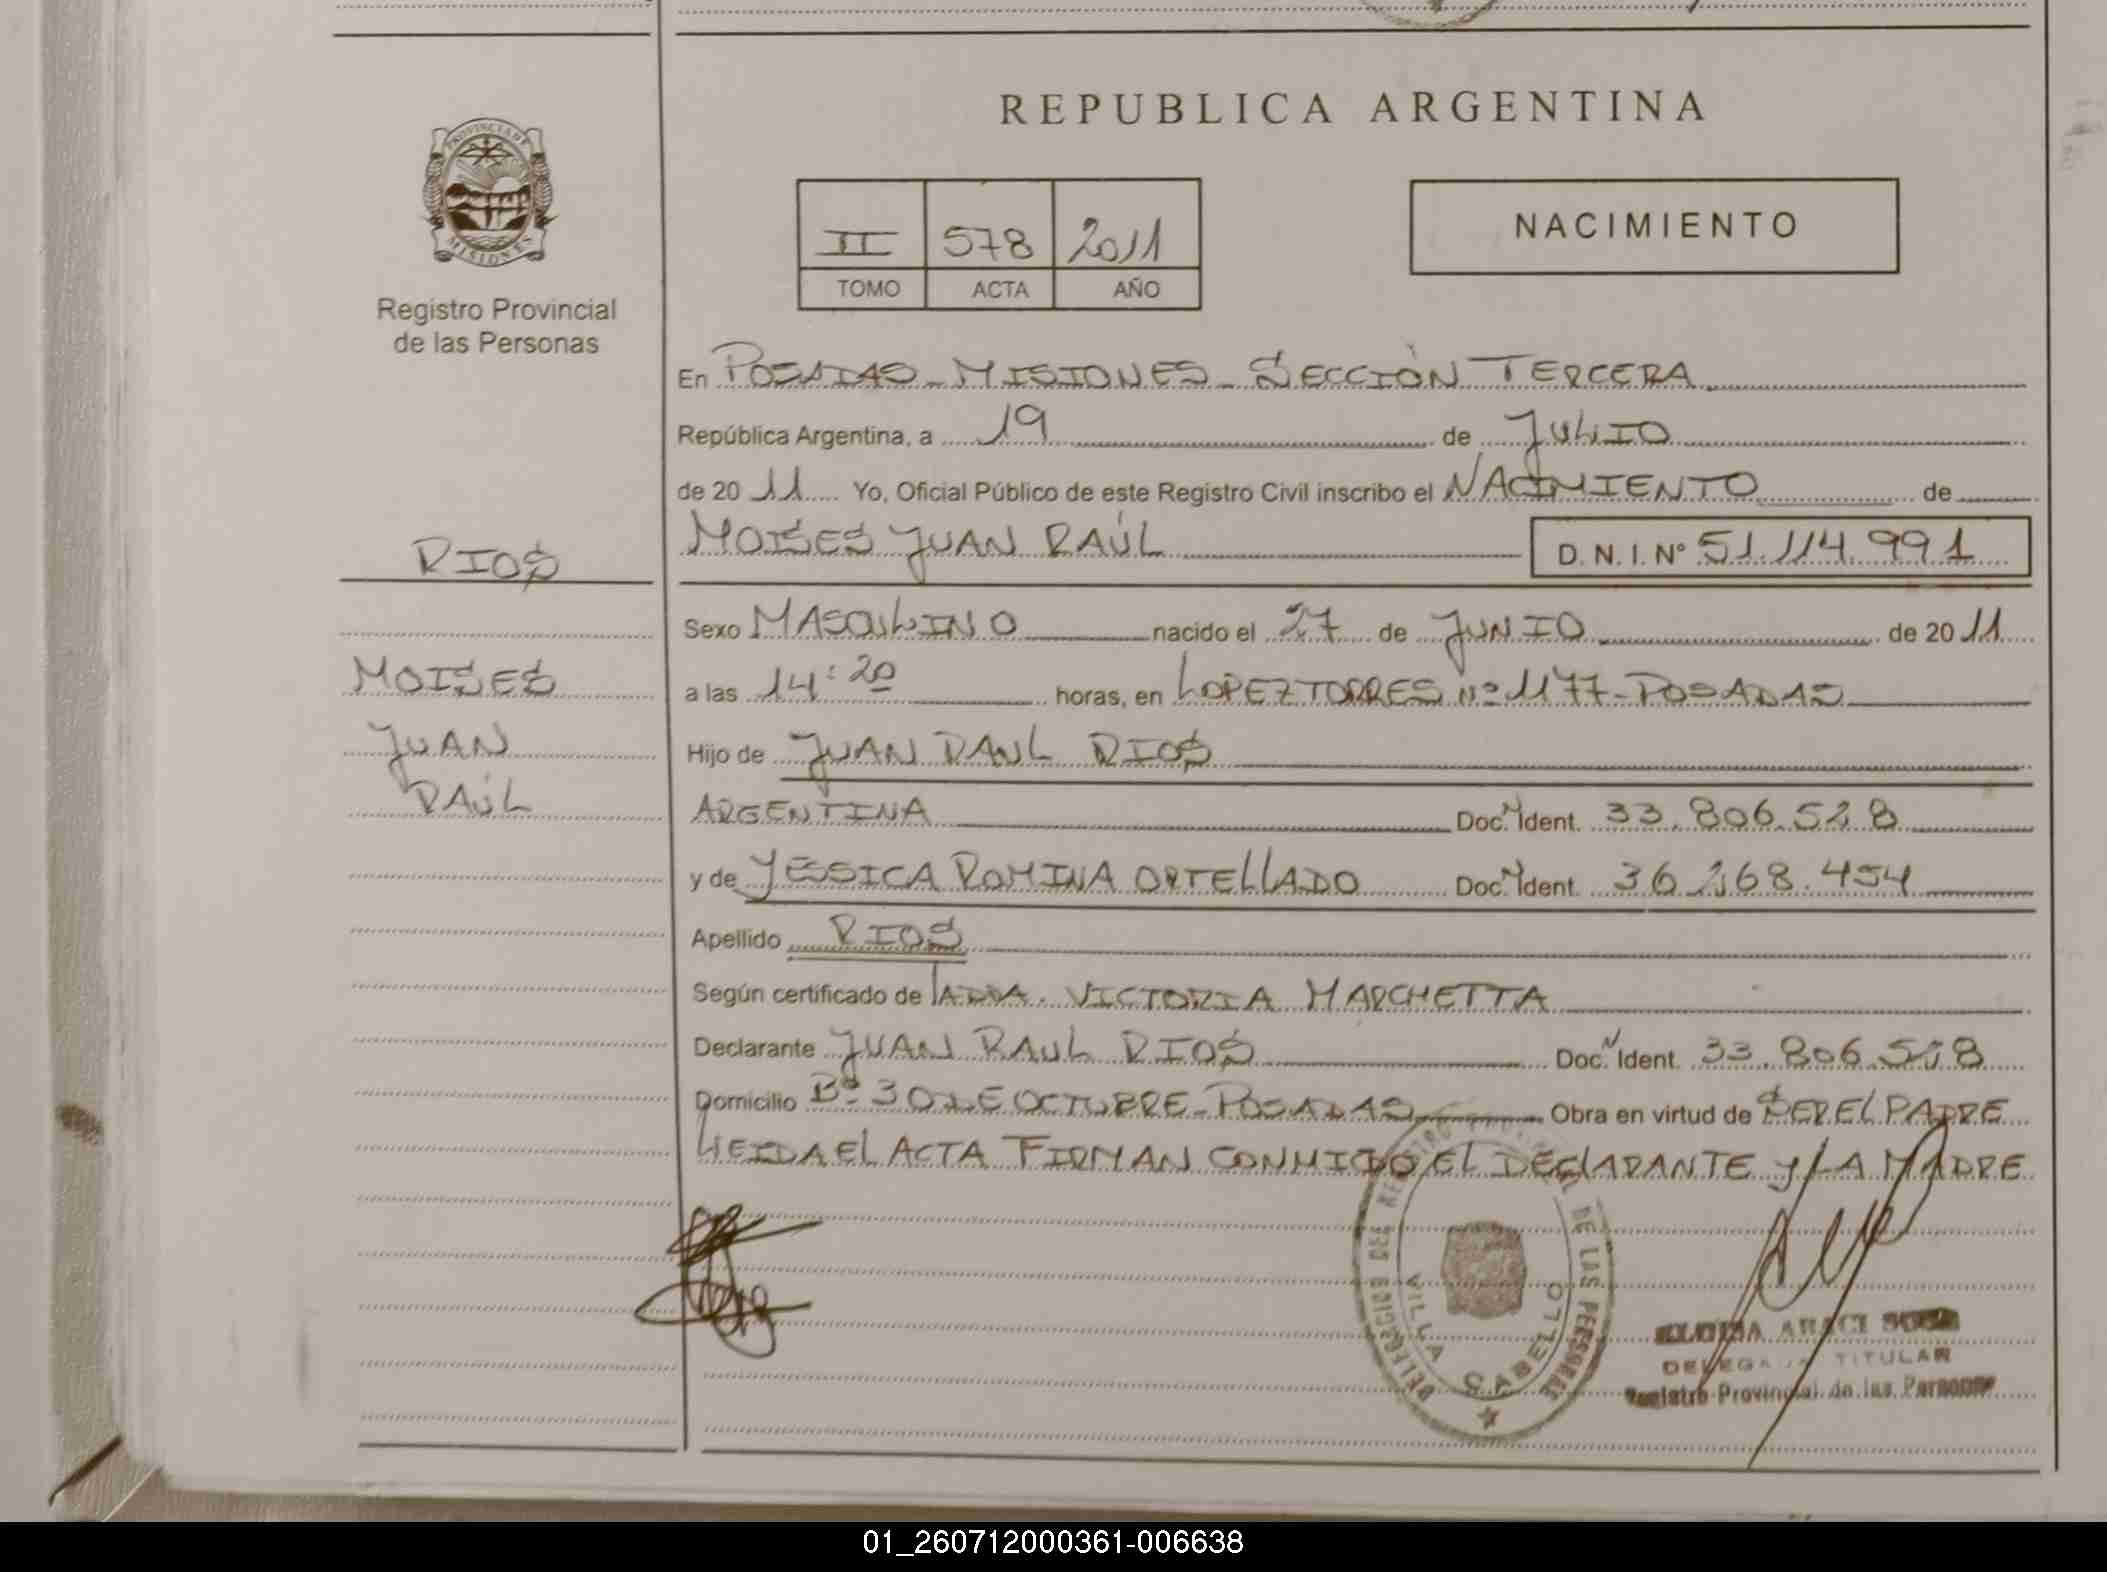 REPUBLICA ARGENTINA
PROVINCIA DE
MISIONES
Registro Provincial
de las Personas
II 578 2011
TOMO ACTA AÑO
NACIMIENTO
En POSADAS - MISIONES - SECCIÓN TERCERA
República Argentina, a 19 de JULIO
de 20 11 Yo, Oficial Público de este Registro Civil inscribo el NACIMIENTO de
MOISES JUAN RAÚL D.N.I. Nº 51.114.991
RIOS
MOISES
JUAN
RAÚL
Sexo MASCULINO nacido el 27 de JUNIO de 20 11
a las 14:20 horas, en LOPEZ TORRES Nº 1177 - POSADAS
Hijo de JUAN RAUL RIOS
ARGENTINA Doc. Ident. 33.806.528
y de YESSICA ROMINA ORTELLADO Doc. Ident. 36.268.454
Apellido RIOS
Según certificado de VICTORIA MARCHETTA
Declarante JUAN RAUL RIOS Doc. Ident. 33.806.528
Domicilio Bº 30 DE OCTUBRE - POSADAS Obra en virtud de SER EL PADRE
LEIDA EL ACTA FIRMAN CONMIGO EL DECLARANTE Y LA MADRE
DE LAS PERSONAS
VILLA CABELLO
DELEGADA TITULAR
Registro Provincial de las Personas
01_260712000361-006638